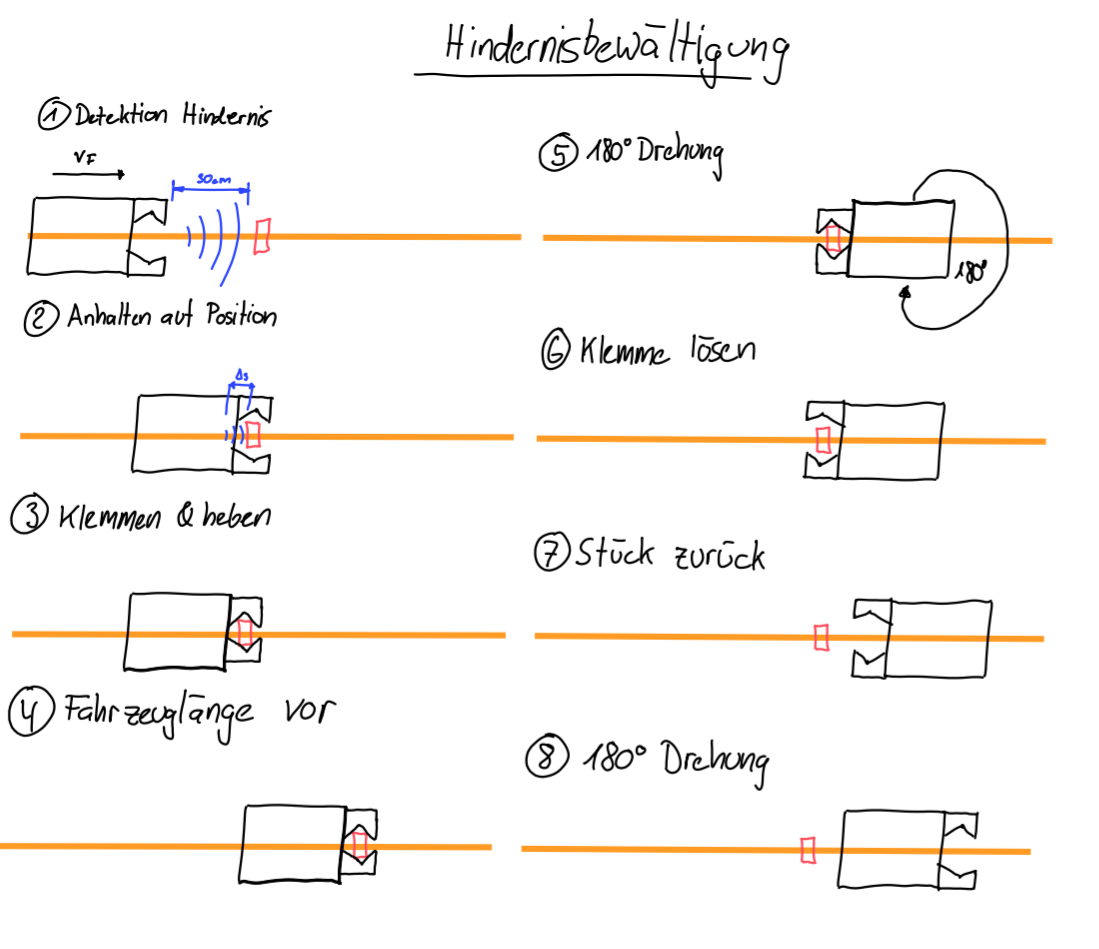 Hindernisbewältigung
① Detektion Hindernis
VF
30cm
② Anhalten auf Position
Δs
③ Klemmen & heben
④ Fahrzeuglänge vor
⑤ 180° Drehung
180°
⑥ Klemme lösen
⑦ Stück zurück
⑧ 180° Drehung